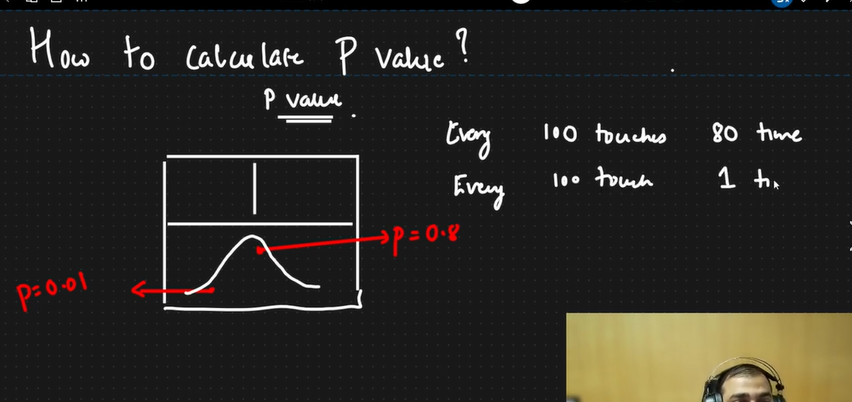 How to calculate P value?
P value.
Every 100 touches 80 time
Every 100 touch 1 ti
P=0.8
P=0.01